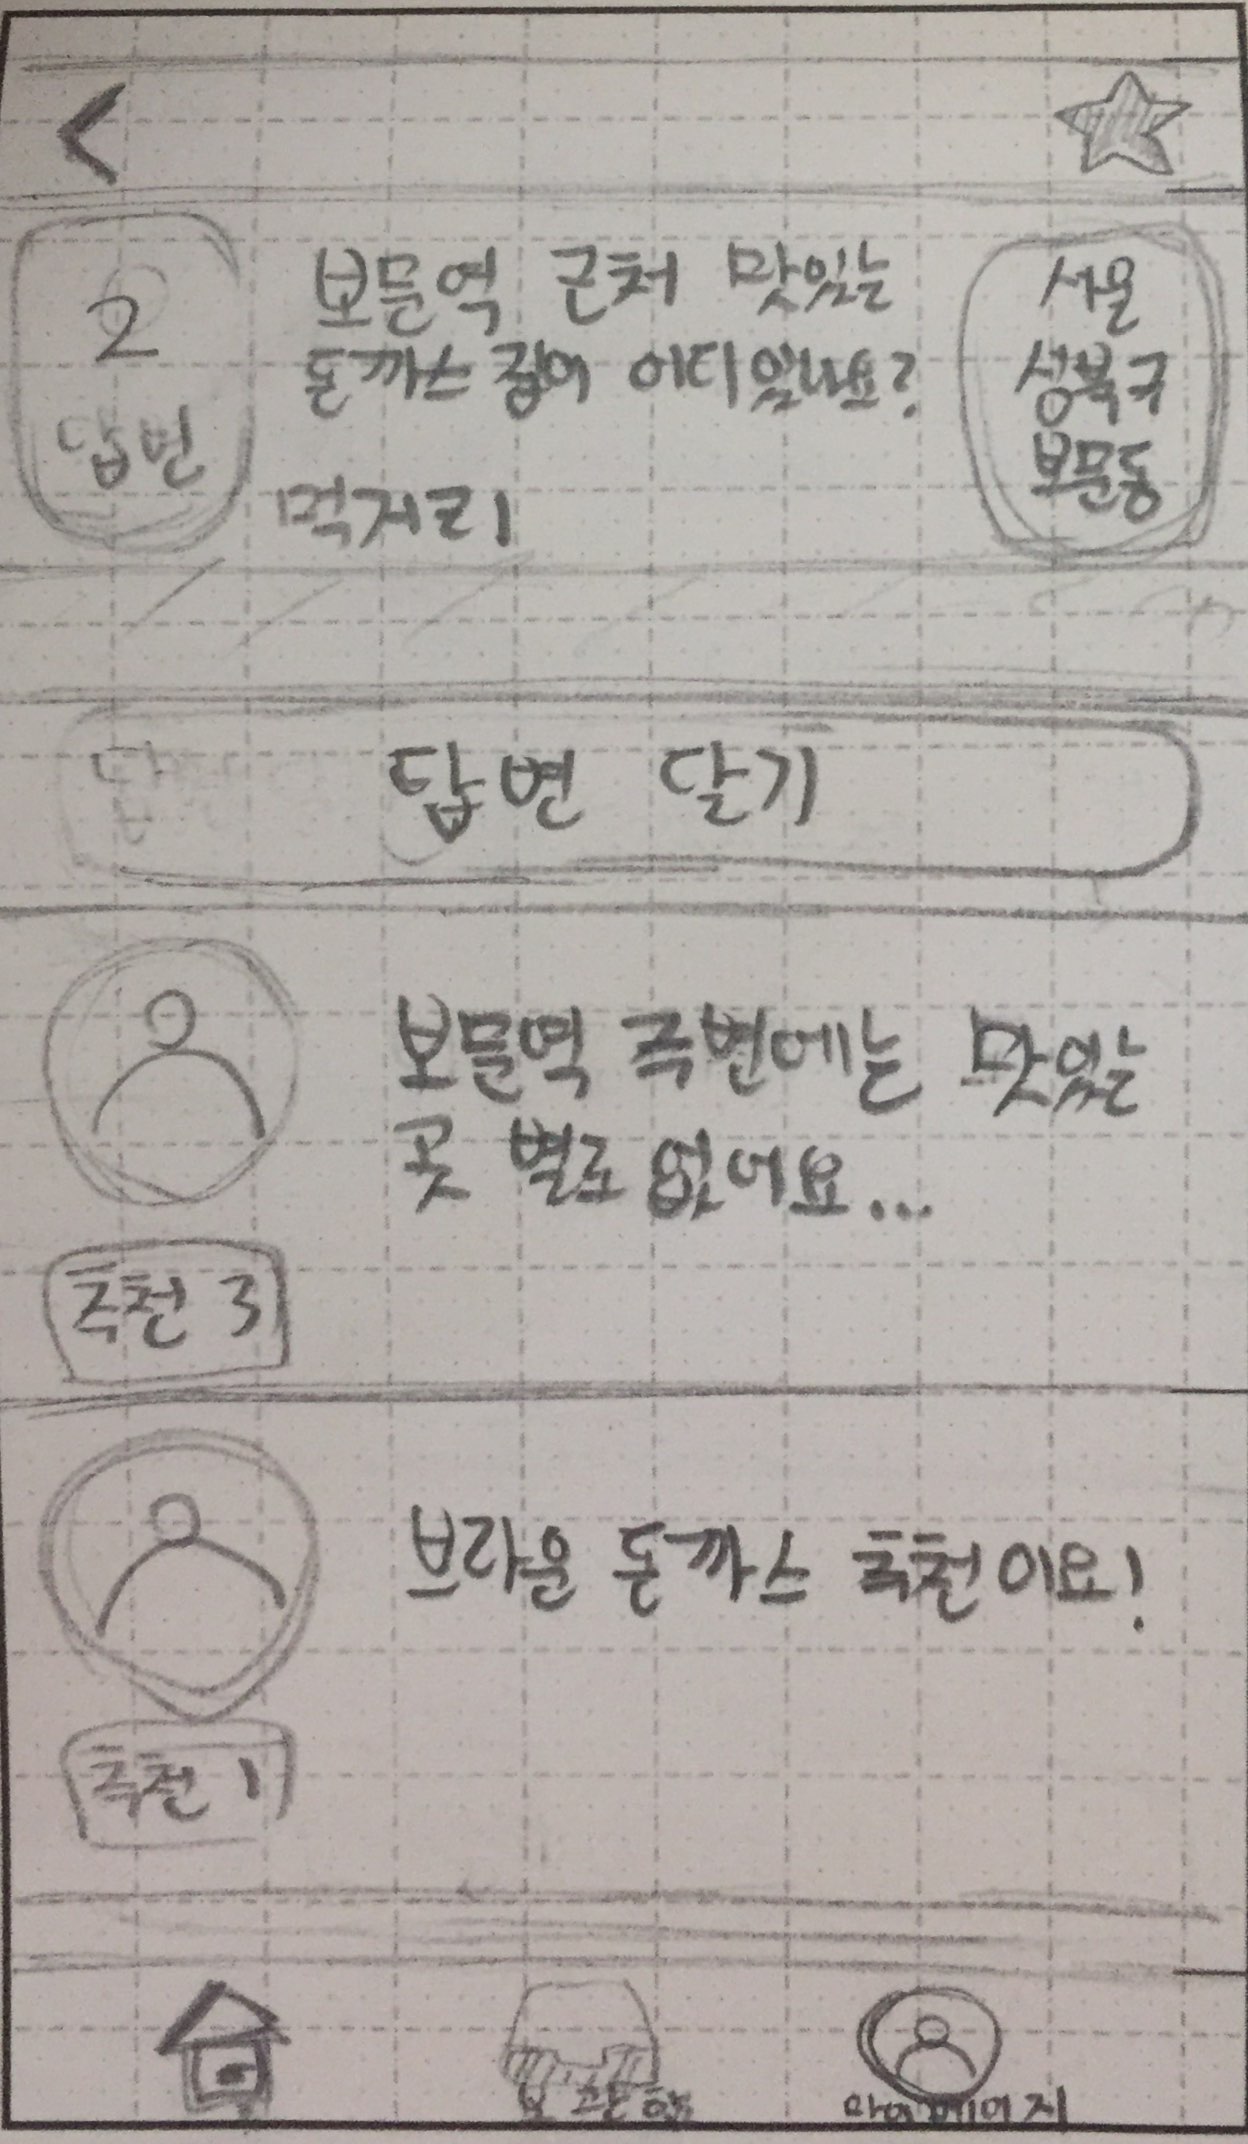 2
답변
보문역 근처 맛있는
돈까스 집이 어디있나요?
먹거리
서울
성북구
보문동
답변 달기
보문역 주변에는 맛있는
곳 별로 없어요...
추천 3
브라운 돈까스 추천이요!
추천 1
보관함
마이페이지